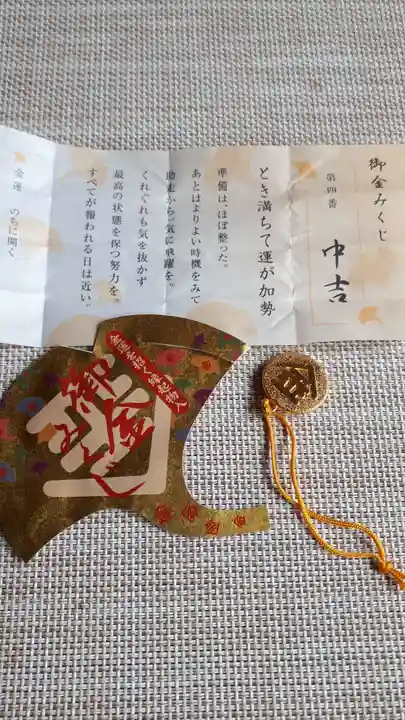 御金みくじ
第四番
中吉
とき満ちて運が加勢
準備は、ほぼ整った。
あとはよりよい時機をみて
助走から一気に飛躍を。
くれぐれも気を抜かず
最高の状態を保つ努力を。
すべてが報われる日は近い。
金運 のちに開く
金運を招く縁起物入
御金みくじ
金